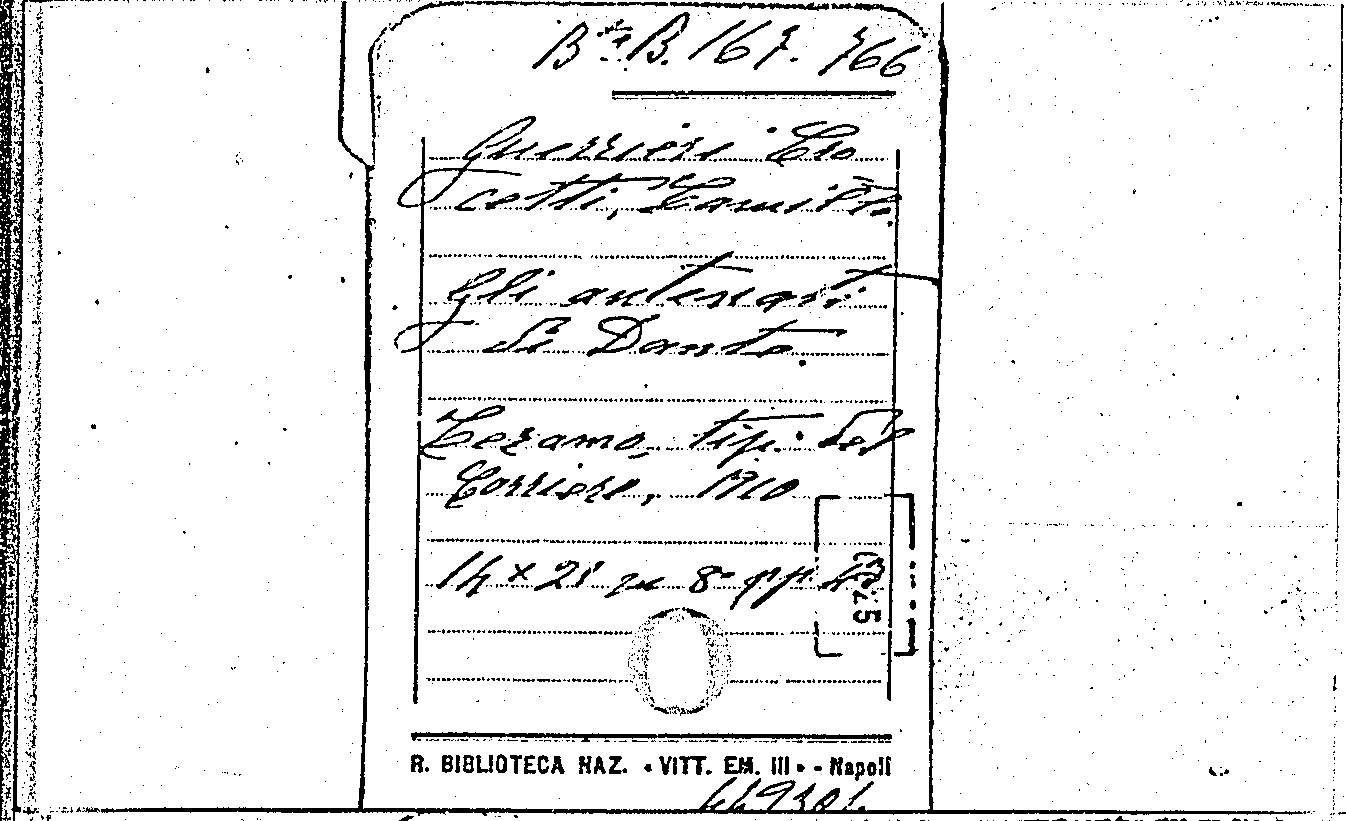 Bta B. 167. 766
Guerrieri Cro
cetti, Camillo.
Gli antenati
di Dante.
Teramo, tip. del
Corriere, 1910
14 x 21 in 8° pp
R. BIBLIOTECA NAZ. • VITT. EM. III • - Napoli